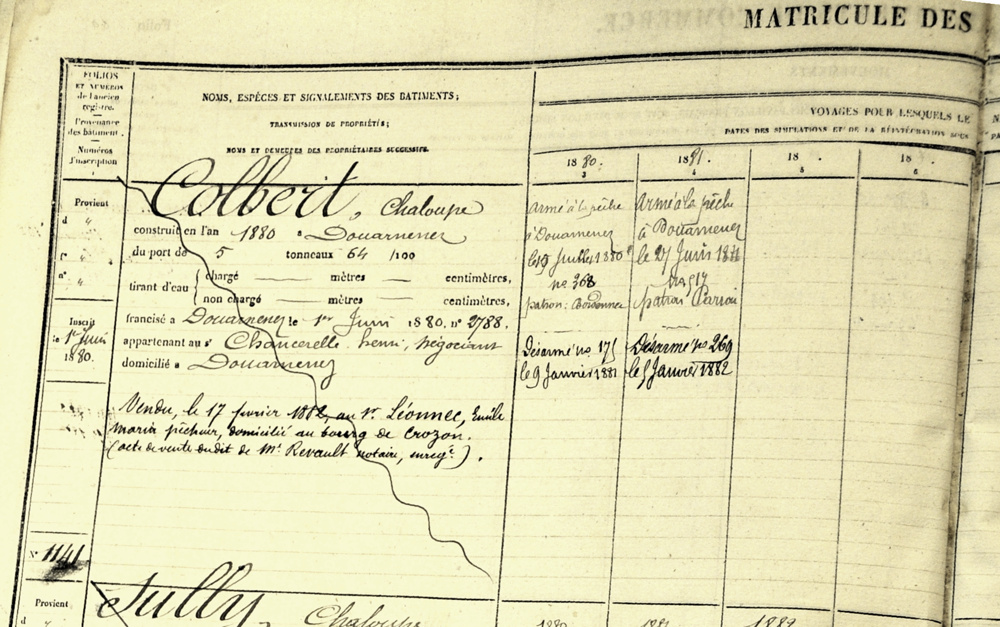 MATRICULE DES
FOLIOS
ET NUMÉROS
de l'ancien
registre.
Provenance
des bâtiment.
Numéros
d'inscription
NOMS, ESPÈCES ET SIGNALEMENTS DES BATIMENTS;
TRANSMISSION DE PROPRIÉTÉS;
NOMS ET DEMEURES DES PROPRIÉTAIRES SUCCESSIFS.
VOYAGES POUR LESQUELS LE
DATES DES SIMULATIONS ET DE LA RÉINTÉGRATION SOUS
1880. 1881. 18 . 18 .
3 4 5 6
Provient
d "
f° "
n° "
Inscrit
le 1er Juin
1880.
N° 1141
Colbert, Chaloupe
construit en l'an 1880 à Douarnenez
du port de 5 tonneaux 64 /100
tirant d'eau { chargé — mètres — centimètres,
non chargé — mètres — centimètres,
francisé a Douarnenez le 1er Juin 1880. n° 2788.
appartenant au Sr Chancerelle henri, négociant
domicilié a Douarnenez
Vendu, le 17 fevrier 1882, au Sr. Léonnec, Emile
marin pêcheur, domicilié au bourg de Crozon.
(acte de vente dudit de Me Revault notaire, enregé).
Armé à la pêche
à Douarnenez
le 19 Juillet 1880
no 368
patron:
Désarmé no 175
le 9 Janvier 1881
Armé à la pêche
à Douarnenez
le 27 Juin 1881
no 517
patron
Désarmé no 269
le 5 Janvier 1882
Provient
d "
Sully, Chaloupe
1880 1881 1882